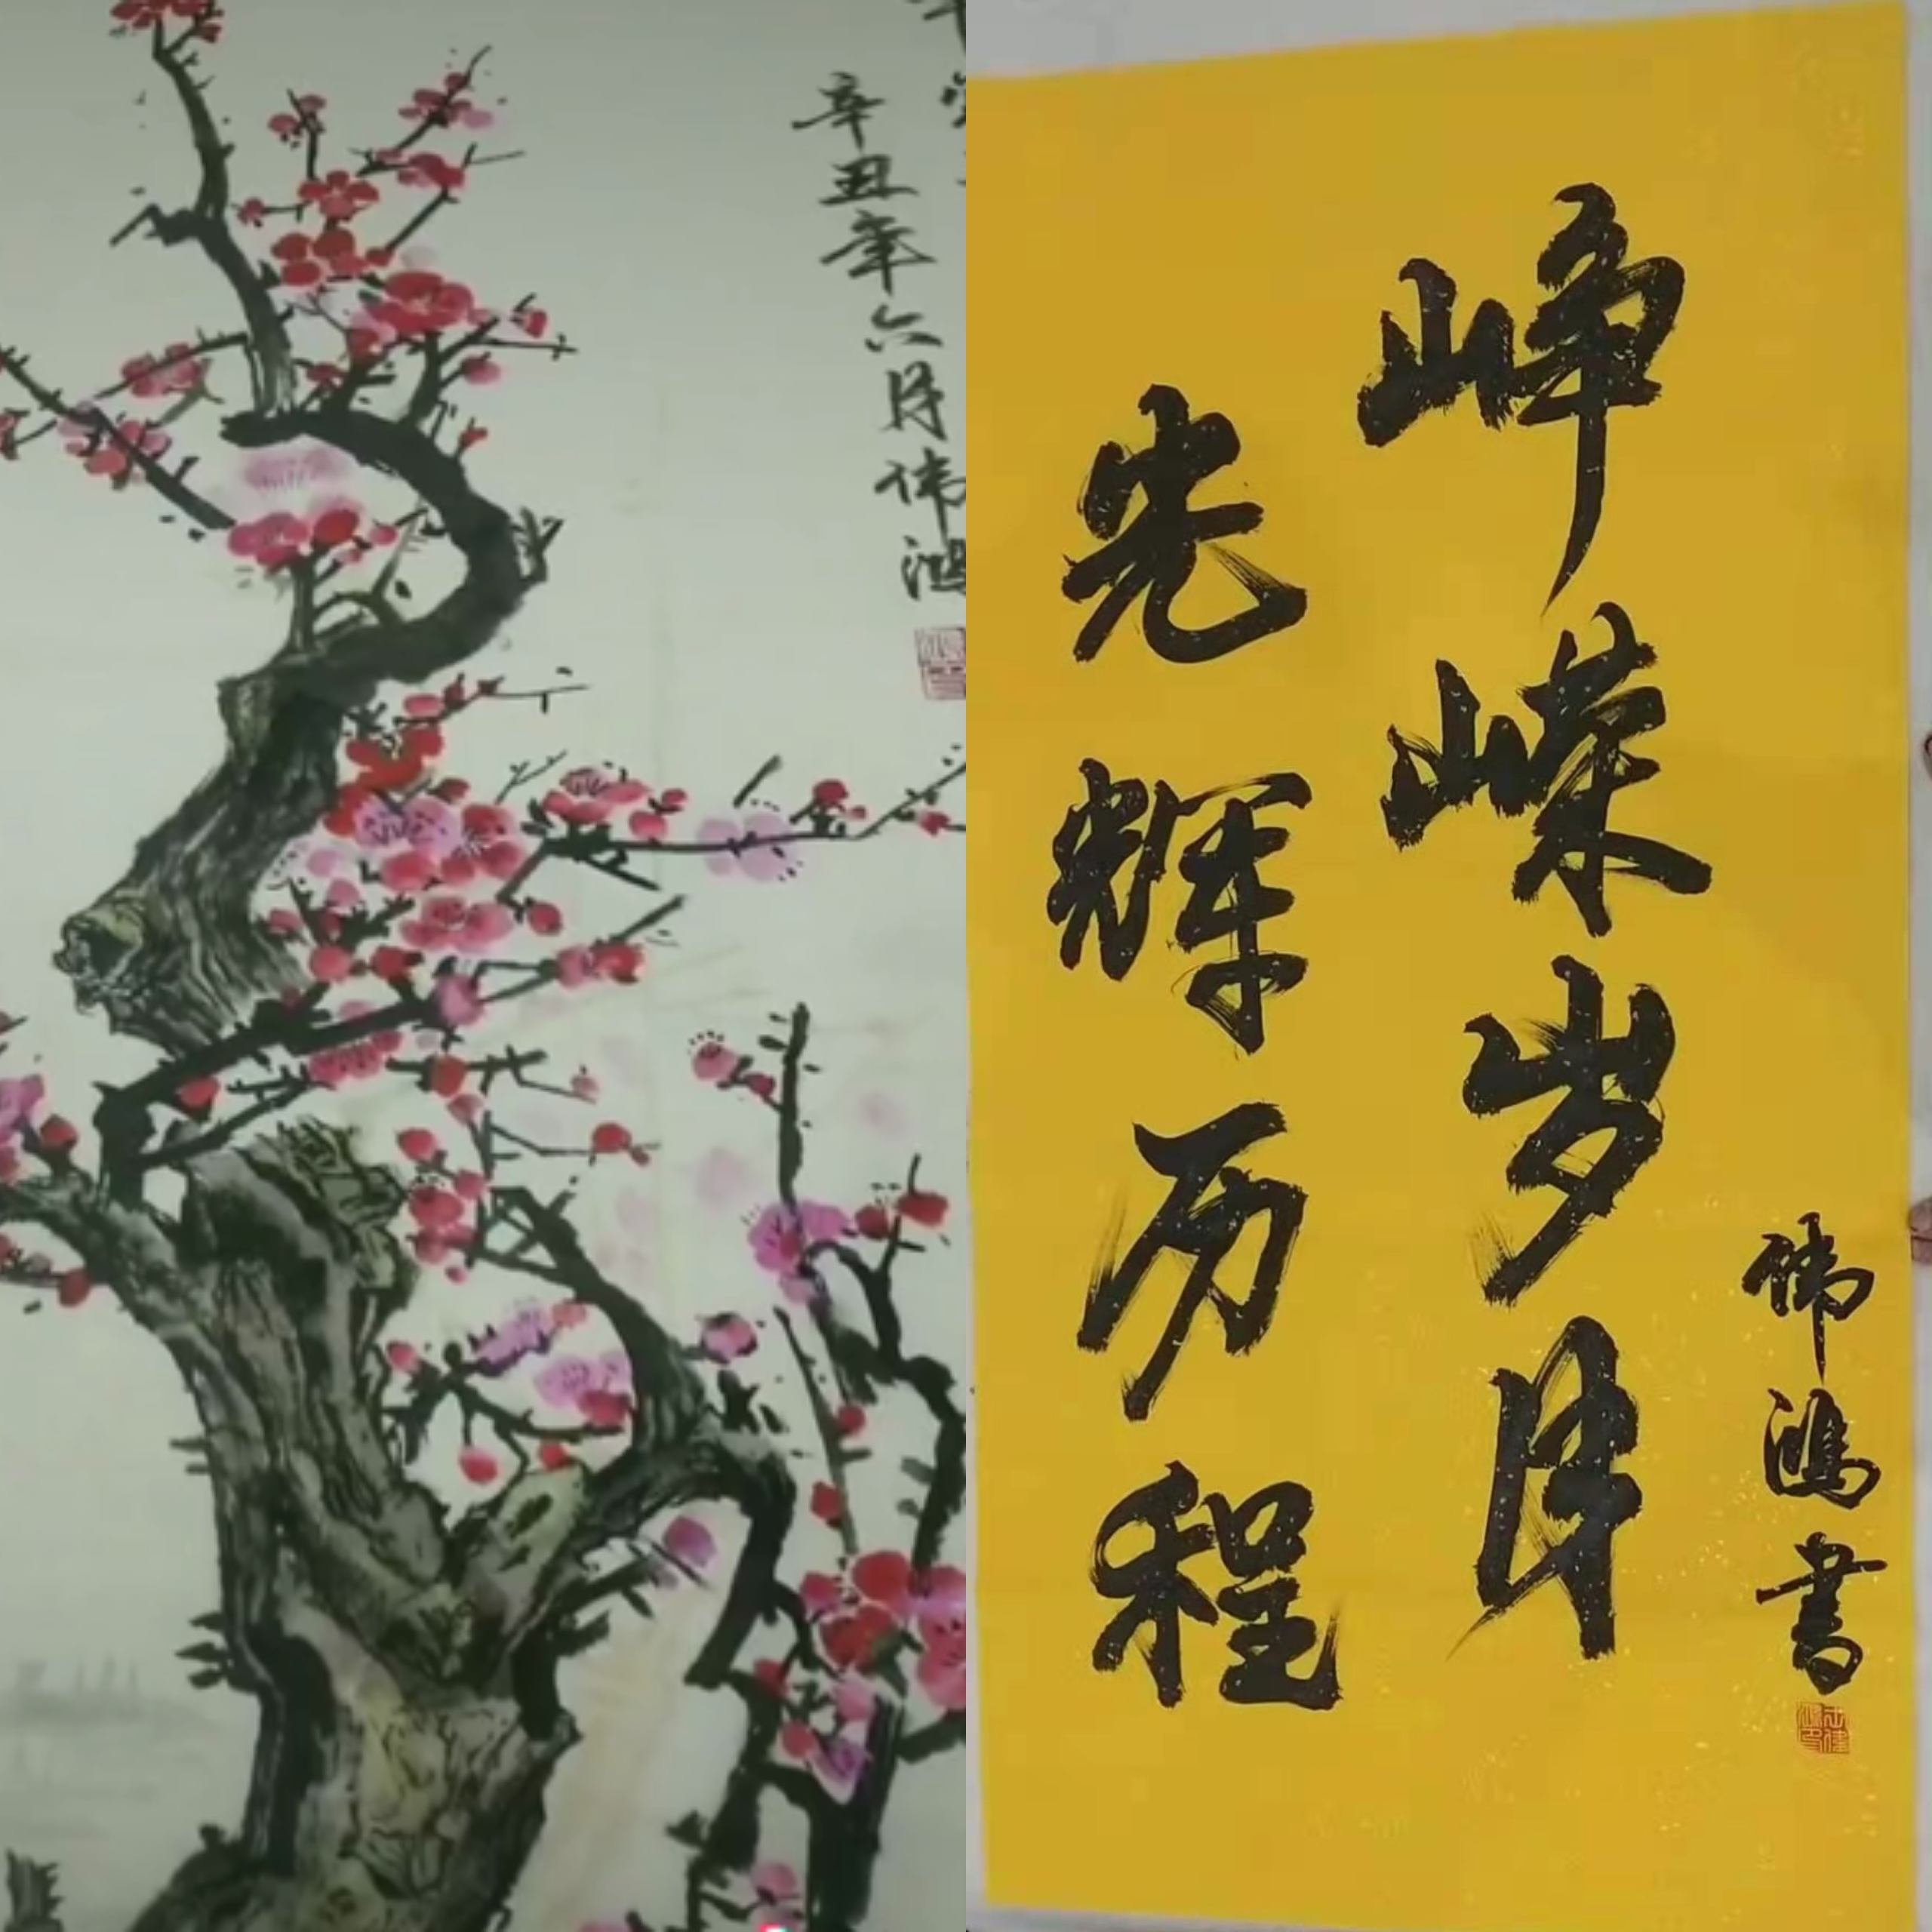 辛丑年六月伟鸿
峥嵘岁月
光辉历程
伟鸿书